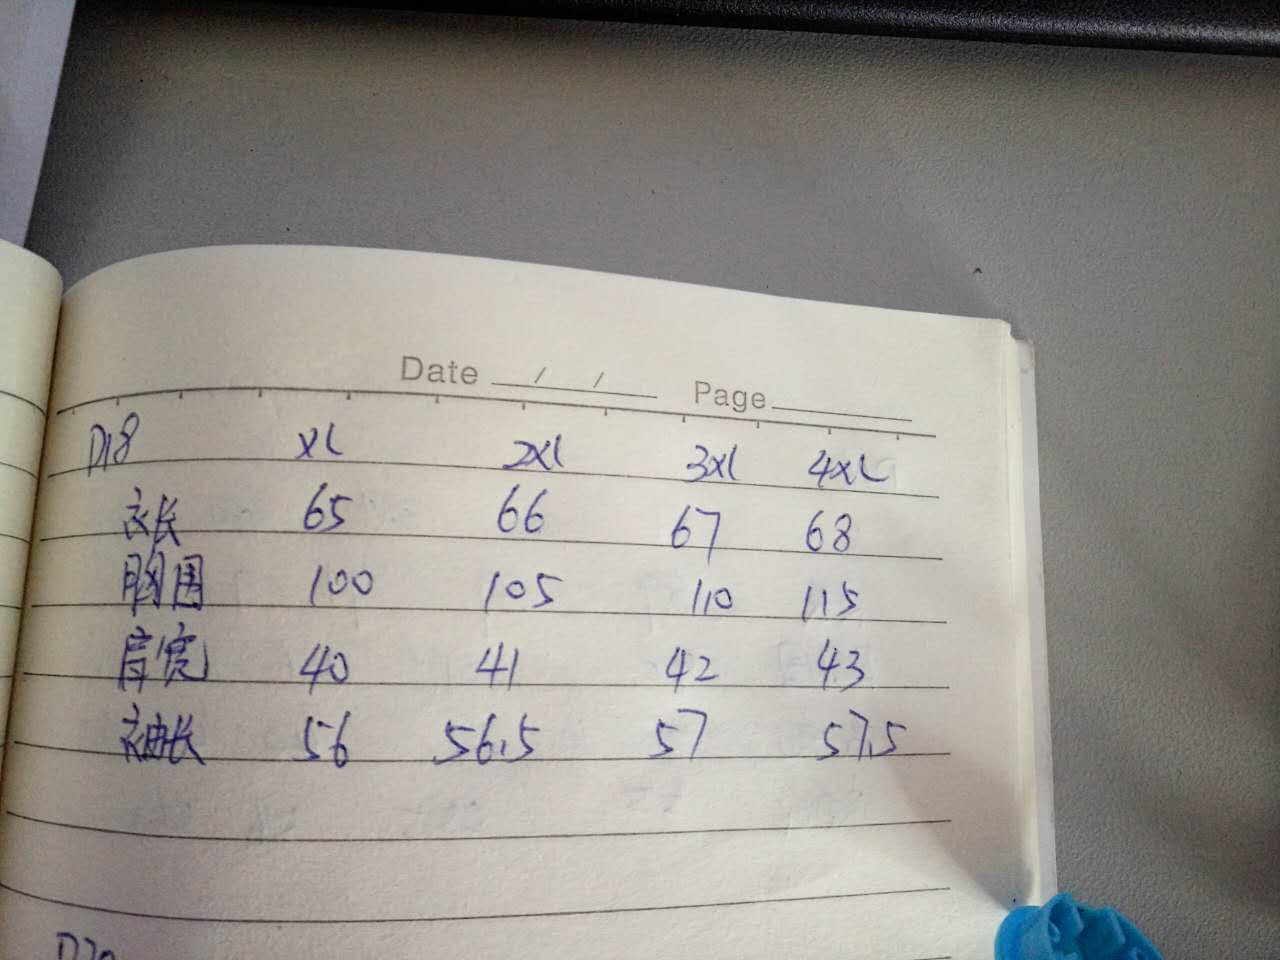 Date / / Page
D18 XL 2XL 3XL 4XL
衣长 65 66 67 68
胸围 100 105 110 115
肩宽 40 41 42 43
袖长 56 56.5 57 57.5